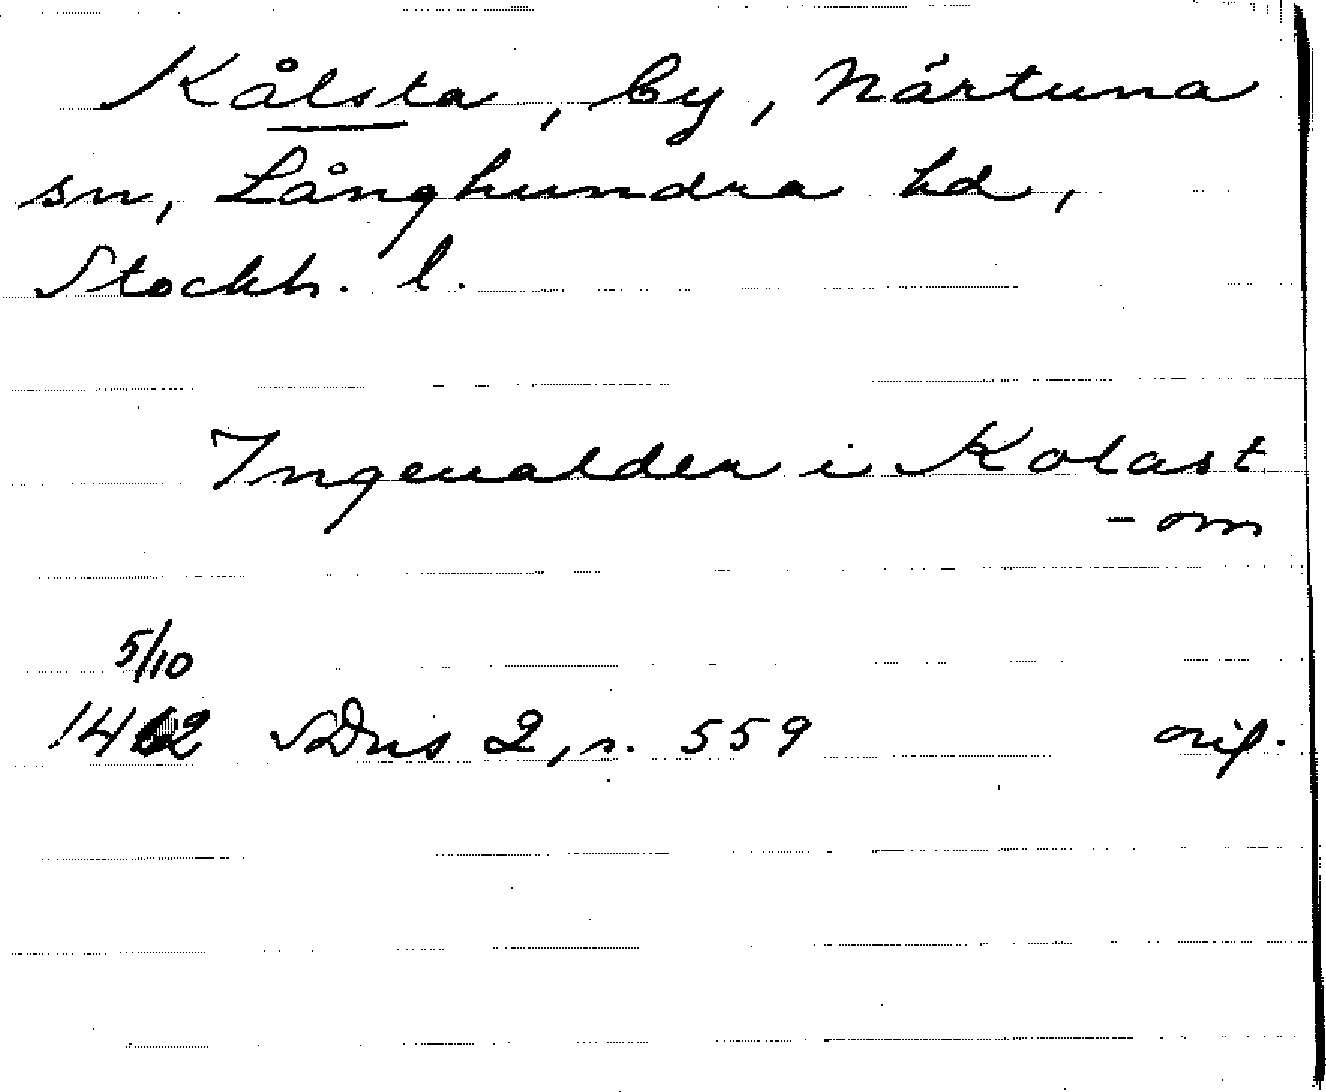 Kålsta, by, Närtuna
sn, Långhundra hd,
Stockh. l.
Ingeualder i Kolast
- om
5/10
1412 SDns 2, s. 559 orig.